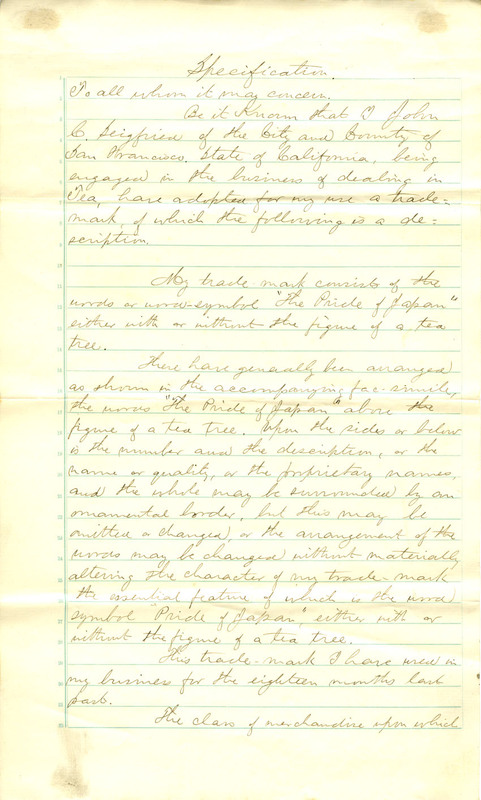 Specification.
To all whom it may concern.
Be it Known that I John
C. Seigfried of the City and County of
San Francisco, State of California, being
engaged in the business of dealing in
Tea, have adopted for my use a trade=
mark, of which the following is a de=
scription.
My trade-mark consists of the
words or word-symbol "The Pride of Japan"
either with or without the figure of a tea
tree.
These have generally been arranged
as shown in the accompanying fac-simile,
the words "The Pride of Japan" above the
figure of a tea tree. Upon the sides or below
is the number and the description, or the
name or quality, or the proprietary names,
and the whole may be surrounded by an
ornamental border, but this may be
omitted or changed, or the arrangement of the
words may be changed without materially
altering the character of my trade-mark
the essential feature of which is the word
symbol "Pride of Japan", either with or
without the figure of a tea tree.
This trade-mark I have used in
my business for the eighteen months last
past.
The class of merchandise upon which